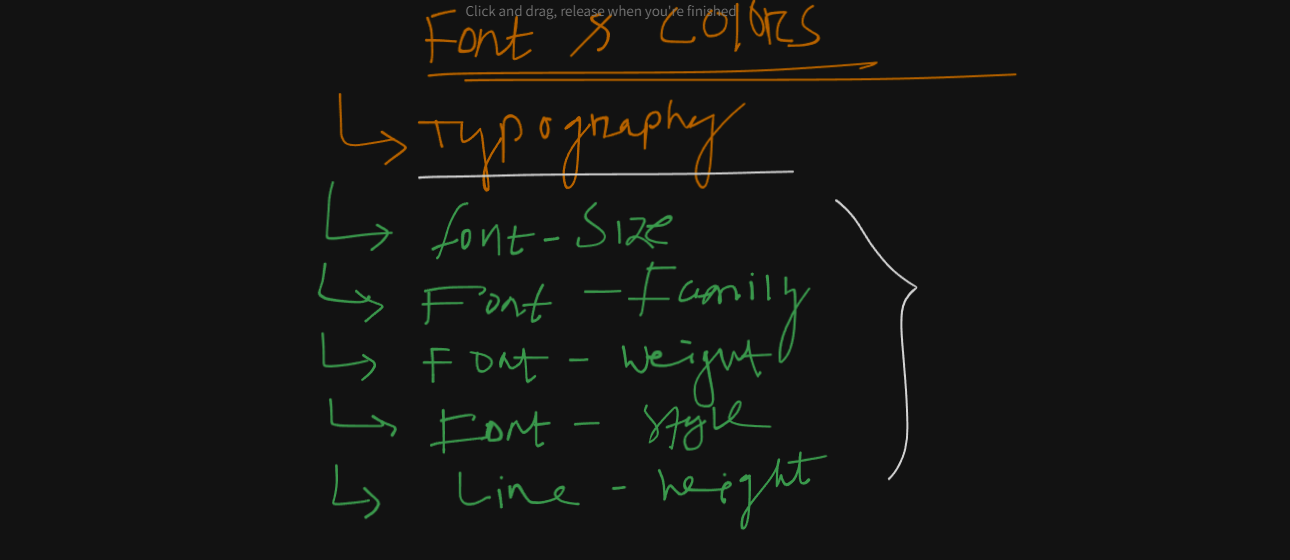 Click and drag, release when you're finished
Font & Colors
Typography
font-Size
Font - Family
Font - Weight
Font - style
Line - height